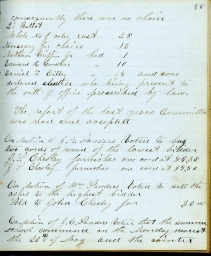 consequently there was no choice
2d Ballot
Whole No of votes cast 25
Necessary for choice 13
Nathan Griffin Jr had
Edward G.
Daniel E. Tilly 18 and was
declared elected who being present to
the oath of office prescribed by law.
The report of the last years Committee
was read and accepted
On motion of Sanders Voted to
two cords of wood of the lowest bidder
Chesley furnishes one cord at $4.50
Chesley furnishes one cord $4.50
On motion of Wm Sanders Voted to sell the
ashes to the highest bidder
Sold to John Chesley for 50 cts
On motion of Sanders Voted that the summer
school commence on the Monday nearest
the 20th of May and the winter